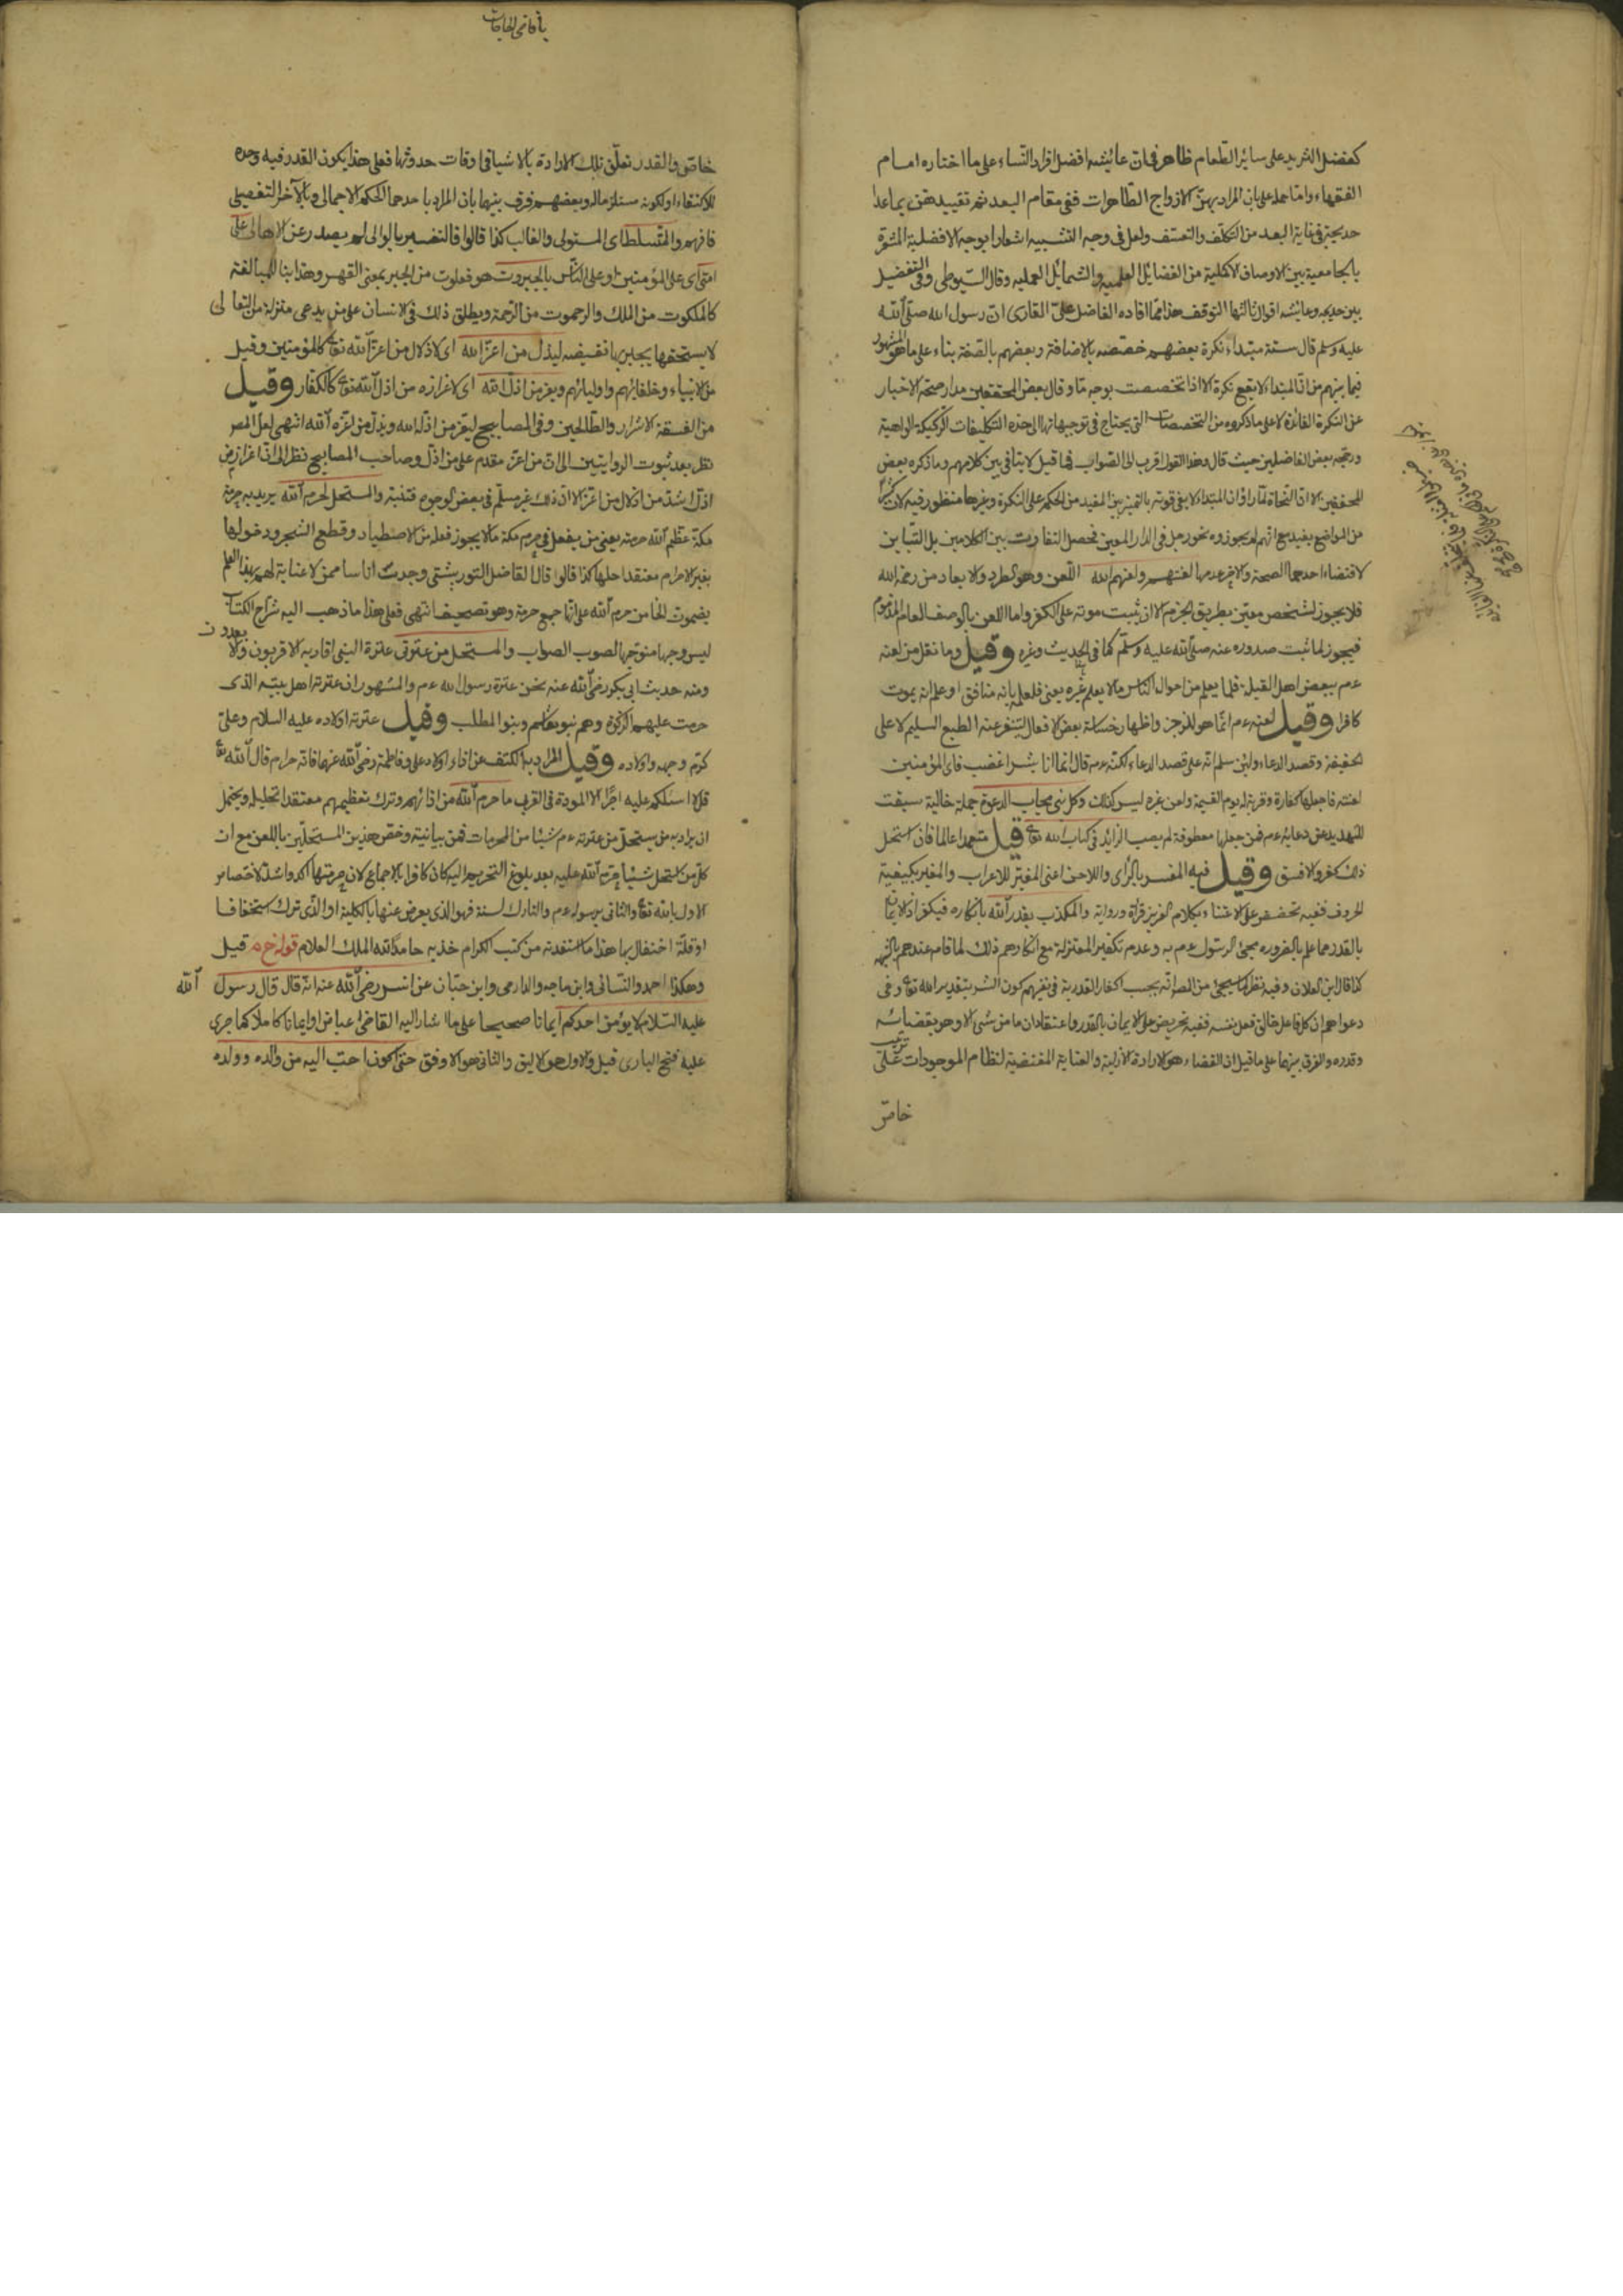 كفضل الثريد على سائر الطعام ظاهر في ان عائشه افضل افراد النساء على ما اختاره امام
الفقهاء واما حمله على بان المراد بهن الازواج الطاهرات ففى مقام البعد ثم تقييدهن بما عدا
خديجة في غاية البعد من التكلف والتعسف ولعل في وجه التشبيه اشعارا بوجه الافضلية المشعرة
بالجامعية بين الاوصاف الاكملية من الفضائل العلميه والشمائل العمليه وقال السيوطى وفى التفضيل
بين خديجه وعايشه اقوال ثالثها التوقف هذا مما افاده الفاضل على القارى ان رسول الله صلى الله
عليه وسلم قال ستة مبتداء نكرة بعضهم خصصه بالاضافة وبعضهم بالصفة بناء على ما هو المشهور
فيما بينهم من ان المبتداء لا يقع نكرة الا اذا تخصصت بوجه ما وقال بعض المحققين مدار صحة الاخبار
عن النكرة الفائدة لا على ما ذكروه من التخصصات التى يحتاج في توجيهاتها الى هذه التكليفات الركيكة الواهية
ورجحه بعض الفاضلين حيث قال وهذا القول اقرب الى الصواب فما قيل لا ينافى بين كلامهم وما ذكره بعض
المحققين الا ان النحاة لما راوا ان المبتداء لا يفى قوته بالتميز بين المفيد من الحكم على النكرة وغيرها منظور فيه لان كثيرا
من المواضع يفيد مع انهم لم يجوزوه نحو رجل في الدار المعين فحصل التفاوت بين الكلامين بل التباين
لاقتضاء احدهما الصحة والاخر عدمها لعنتهم ولعنهم الله اللعن وهو الطرد والابعاد من رحمة الله
فلا يجوز لشخص معين بطريق الجزم الا ان يثبت موته على الكفر واما اللعن بالوصف العام المذموم
فيجوز لما ثبت صدوره عنه صلى الله عليه وسلم كما في الحديث وغيره وقيل وما نقل من لعنه
ءم ببعض اهل القبلة فلما يعلم من احوال الناس مالا يعلم غيره يعنى فلعله بانه منافق او علم انه يموت
كافرا وقيل لعنه ءم انما هو للزجر واظهار خساسة بعض الافعال ليتنفر عنه الطبع السليم لا على
الحقيقة وقصد الدعاء ولئن سلم انه على قصد الدعاء لكنه ءم قال انما انا بشر اغضب فاى المؤمنين
لعنته فاجعلها كفارة وقربة له يوم القيمة ولعن غيره ليس كذلك وكل نبى مجاب الدعوة جملة حالية سيقت
للتهديد عن دعائه ءم فمن جعلها معطوفة لم يصب الزايد في كتاب الله تعا قيل متعمدا عالما فان استحل
ذلك كفر والا فسق وقيل فيه المفسر بالرأى واللاحن اعنى المغير للاعراب والمغير بكيفية
الحروف ففيه تحضيض على الاعتناء بكلام العزيز قرأة ورواية والمكذب بقدر الله بانكاره فيكفر اذ الايمان
بالقدر مما علم بالضروره مجئ الرسول ءم به وعدم تكفير المعتزلة مع انكارهم ذلك لما قام عندهم بالشبهه
كذا قال ابن العلان وفيه نظر لما سيجئ من المص انه يجب اكفار القدرية في نفيهم كون الشر بتقدير الله تعا وفى
دعواهم ان كل فاعل خالق فعل نفسه ففيه تحريض على الايمان بالقدر واعتقاد ان ما من شئ الا وهو بقضائه
وقدره والفرق بينهما على ما قيل ان القضاء هو الارادة الازلية والعناية المقتضية لنظام الموجودات على ترتيب
خاص
يا قاضى الحاجات
خاص والقدر تعلق تلك الارادة بالاشيا في اوقات حدوثها فعلى هذا يكون القدر فيه وحده
للاكتفاء او لكونه مستلزما له وبعضهم فرق بينهما بان المراد باحدهما الحكم الاجمالى وبالآخر التفصيلى
فافهم والمتسلط اى المستولى والغالب كذا قالوا فالتفسير بالوالى لم يصدر عن الاهالى على
امتى اى على المؤمنين او على الناس بالجبروت هو فعلوت من الجبر بمعنى القهر وهذا بنا للمبالغة
كالملكوت من الملك والرحموت من الرحمة ويطلق ذلك في الانسان على من يدعى منزلة من التعالى
لا يستحقها يجبر بها نقيضه ليذل من اعز الله اى لاذلال من اعز الله تعا كالمؤمنين وقيل
من الانبياء وخلفائهم واوليائهم ويعز من اذل الله اى لاعزازه من اذل الله تعا كالكفار وقيل
من الفسقة الاشرار والظالمين وفى المصابيح ليعز من اذله الله ويذل من اعزه الله انتهى لعل المص
نظر بعد ثبوت الروايتين الى ان من اعز مقدم على من اذل وصاحب المصابيح نظر الى ان اعزاز من
اذل اشد من اذلال من اعز الا ان ذلك غير مسلم في بعض الوجوه فتنبه والمستحل لحرم الله يريد به حرمة
مكة عظم الله حرمته يعنى من يفعل في حرم مكة مالا يجوز فعله من الاصطياد وقطع الشجر ودخولها
بغير الاحرام معتقدا حلها كذا قالوا قال الفاضل التوربشتى وجدت اناسا ممن لا عناية لهم بهذا العلم
يضمون الحا من حرم الله على انها جمع حرمة وهو تصحيف انتهى فعلى هذا ما ذهب اليه شراح الكتاب
ليس وجها متوجها لصوب الصواب والمستحل من عترتى عترة النبى اقاربه الاقربون والابعدون
ومنه حديث ابى بكر رضى الله عنه نحن عترة رسول الله ءم والمشهور ان عترته اهل بيته الذى
حرمت عليهم الزكوة وهم بنو هاشم وبنو المطلب وقيل عترته اولاده عليه السلام وعلى
كرم وجهه واولاده وقيل المراد به الكشف عن اذاء اولاد على وفاطمة رضى الله عنهما فانه حرام قال الله تعا
قل لا اسئلكم عليه اجرا الا المودة في القربى ما حرم الله من اذائهم وترك تعظيمهم معتقدا تحليله ويحتمل
ان يراد به من يستحل من عترته ءم شيئا من المحرمات فمن بيانية وخص هذين المستحلين باللعن مع ان
كل من استحل شيئا حرم الله عليه بعد بلوغ التحريم اليه كان كافرا بالاجماع لان حرمتها اكد واشد لاختصاص
الاول بالله تعا والثانى برسوله ءم والتارك لسنة فهو الذى يعرض عنها بالكلية او الذى ترك استخفافا
او قلة احتفال بها هذا ما استفدته من كتب الكرام خذ به حامدا لله الملك العلام قوله خ م قيل
وهكذا احمد والنسائى وابن ماجه والدارمى وابن حبان عن انس رضى الله عنه انه قال قال رسول الله
عليه السلام لا يؤمن احدكم ايمانا صحيحا على ما اشار اليه القاضى عياض او ايمانا كاملا كما جرى
عليه فتح البارى قيل والاول هو الاليق والثانى هو الاوفق حتى اكون احب اليه من والده وولده